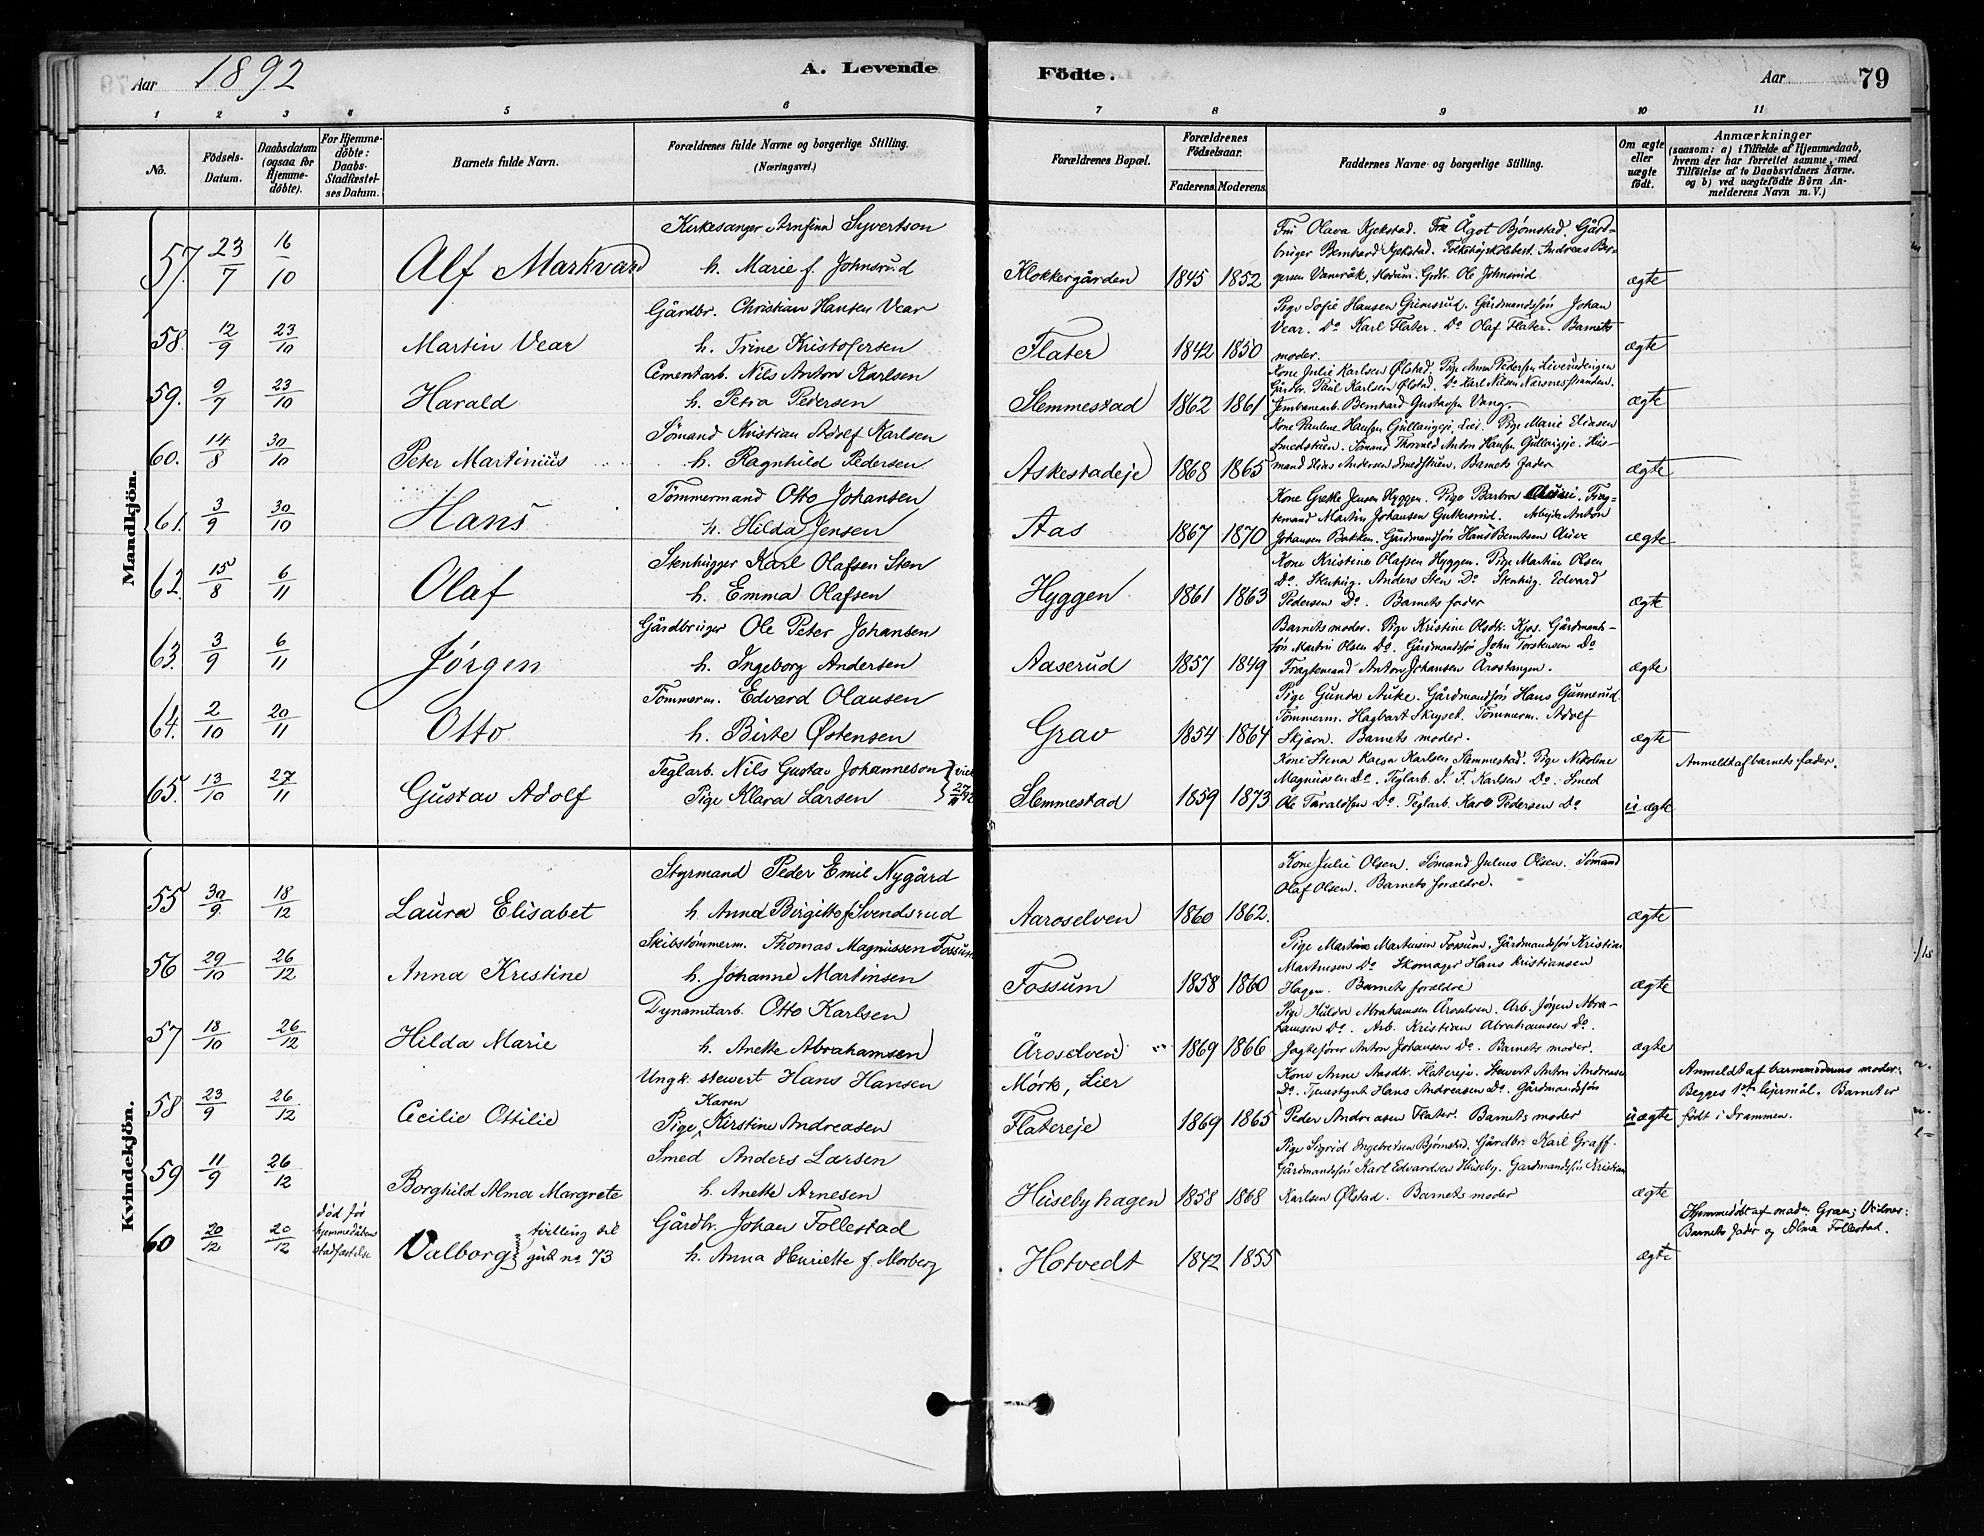 Aar 1892 A. Levende Födte. Aar 79
1 2 3 4 5 6 7 8 9 10 11
No.
Födsels-Datum.
Daabsdatum (ogsaa för Hjemme-döbte).
For Hjemme-döbte: Daabs Stadfæstel-ses Datum.
Barnets fulde Navn.
Forældrenes fulde Navne og borgerlige Stilling. (Næringsvei.)
Forældrenes Bopæl.
Forældrenes Födselsaar.
Faderens. Moderens.
Faddernes Navne og borgerlige Stilling.
Om ægte eller uægte födt.
Anmærkninger
(saasom: a) i Tilfælde af Hjemmedaab,
hvem der har forrettet samme, med
Tilföielse af to Daabsvidners Navne.
og b) ved uægtefödte Börn An-
melderens Navn m. V.)
Mandkjön.
57. 23/7 16/10 Alf Markvard
Kirkesanger Arnfinn Syvertson
h. Marie f. Johnsrud
Klokkergården 1845 1852
Fru Olava Kjekstad. Frk Ågot Bjømstad. Gård-
bruger Bernhard Kjekstad. Folkehøjskolebest. Andreas Ber-
gersen Modum. Grdbr. Ole Johnsrud
ægte
58. 12/9 23/10 Martin Vear
Gårdbr. Christian Hansen Vear
h. Trine Kristofersen
Flater 1842 1850
Pige Sofie Hansen Grimsrud. Gårdmandsøn Johan
Vear. Do Karl Flater. Do Olaf Flater. Barnets
moder.
ægte
59. 9/7 23/10 Harald
Cementarb. Nils Anton Karlsen
h. Petra Pedersen
Slemmestad 1862 1861
Kone Julie Karlsen Ølstad. Pige Anna Pedersen
Gårdbr. Paul Karlsen Ølstad. Do Karl Nilsen Nærsnesstranden.
Jernbanearb. Bernhard Gustavsen Vang.
ægte
60. 14/8 30/10 Peter Martinius
Sømand Kristian Adolf Karlsen
h. Ragnhild Pedersen
Askestadeje 1868 1865
Kone Pauline Hansen Gullaugeje, Lier. Pige Marie Eliasen
Smedstuen. Sømand Thorvald Anton Hansen Gullaugeje. Hus-
mand Elias Andersen Smedstuen. Barnets fader
ægte
61. 3/9 30/10 Hans
Tömmermand Otto Johansen
h. Hilda Jensen
Aas 1867 1870
Kone Grethe Jensen Hyggen. Pige Barbra Auve. Frag-
temand Martin Johansen Guttersrud. Arbejder Anton
Johansen Bakken. Gårdmandsøn Hans Berntsen Auve
ægte
62. 15/8 6/11 Olaf
Stenhugger Karl Olafsen Sten
h. Emma Olafsen
Hyggen 1861 1863
Kone Kristine Olafsen Hyggen. Pige Martine Olsen
Do. Stenhug. Anders Sten Do Stenhug. Edvard
Pedersen Do. Barnets fader
ægte
63. 3/9 6/11 Jørgen
Gårdbruger Ole Peter Johansen
h. Ingeborg Andersen
Aaserud 1857 1849
Barnets moder. Pige Kristine Olsdtr. Kjos. Gårdmands-
søn Martin Olsen Do. Gårdmandsøn John Torstensen Do
Fragtemand Anton Johansen Årostangen.
ægte
64. 2/10 20/11 Otto
Tömmerm. Edvard Olausen
h. Birte Østensen
Grav 1854 1864
Pige Gunda Auke. Gårdmandsøn Hans Gunnerud
Tömmerm. Hagbart Skryset. Tömmerm. Adolf
Skjærn. Barnets moder.
ægte
65. 13/10 27/11 Gustav Adolf
Teglarb. Nils Gustav Johanneson } viet
Pige Klara Larsen 27/11 92
Slemmestad 1859 1873
Kone Stena Kaesa Karlsen Slemmestad. Pige Nikoline
Magnusen Do. Teglarb. S. F. Karlsen Do. Smed
Ole Taraldsen Do. Teglarb. Karl Pedersen Do
uægte
Anmeldt af barnets fader.
Kvindekjön.
55 30/9 18/12 Laura Elisabet
Styrmand Peder Emil Nygård
h. Anna Birgitte f. Svendsrud
Aaroselven 1860 1862.
Kone Julie Olsen. Sømand Julius Olsen. Sømand
Olaf Olsen. Barnets forældre.
ægte
56 29/10 26/12 Anna Kristine
Skibstømmerm. Thomas Magnussen Fossum
h. Johanne Martinsen
Fossum 1858 1860
Pige Martine Martinsen Fossum. Gårdmandsøn Kristian
Martinsen Do Skomager Hans Kristiansen
Hagen. Barnets forældre
ægte
57 18/10 26/12 Hilda Marie
Dynamitarb. Otto Karlsen
h. Anette Abrahamsen
Åroselven 1869 1866
Pige Hilda Abrahamsen Åroselven. Arb. Jörgen Abra-
hamsen Do. Arb. Kristian Abrahamsen Do.
Jagtefører Anton Johansen Do. Barnets moder.
ægte
58 23/9 26/12 Cecilie Ottilie
Ungk. stewert Hans Hansen
Karen
Pige Kirstine Andreasen
Mörk, Lier
Flatereje 1869 1865
Kone Anne Aasdtr. Flatereje. Stewert Anton Andreasen
Do. Tjenestgut Hans Andreasen Do. Gårdmandsøn
Peder Andreasen Flater. Barnets moder
uægte
Anmeldt af barnemoderens moder.
Begges 1ste lejermål. Barnet er
født i Drammen.
59 11/9 26/12 Borghild Alma Margrete
Smed Anders Larsen
h. Anette Arnesen
Husebyhagen 1858 1868
Pige Sigrid Ingebretsen Bjømstad. Gårdbr. Karl Graff.
Gårdmandsøn Karl Edvardsen Huseby. Gardmandsøn Kristian
Karlsen Ølstad. Barnets moder
ægte
60 20/12 20/12
død før
hjemmedåbens
stadfæstelse
Valborg
tvilling til
gut no 73
Gårdbr. Johan Follestad
h. Anna Henriette f. Morberg
Hotvedt 1842 1855
ægte
Hjemmedøbt af madm. Gran; Vidner:
Barnets fader og Alma Follestad.